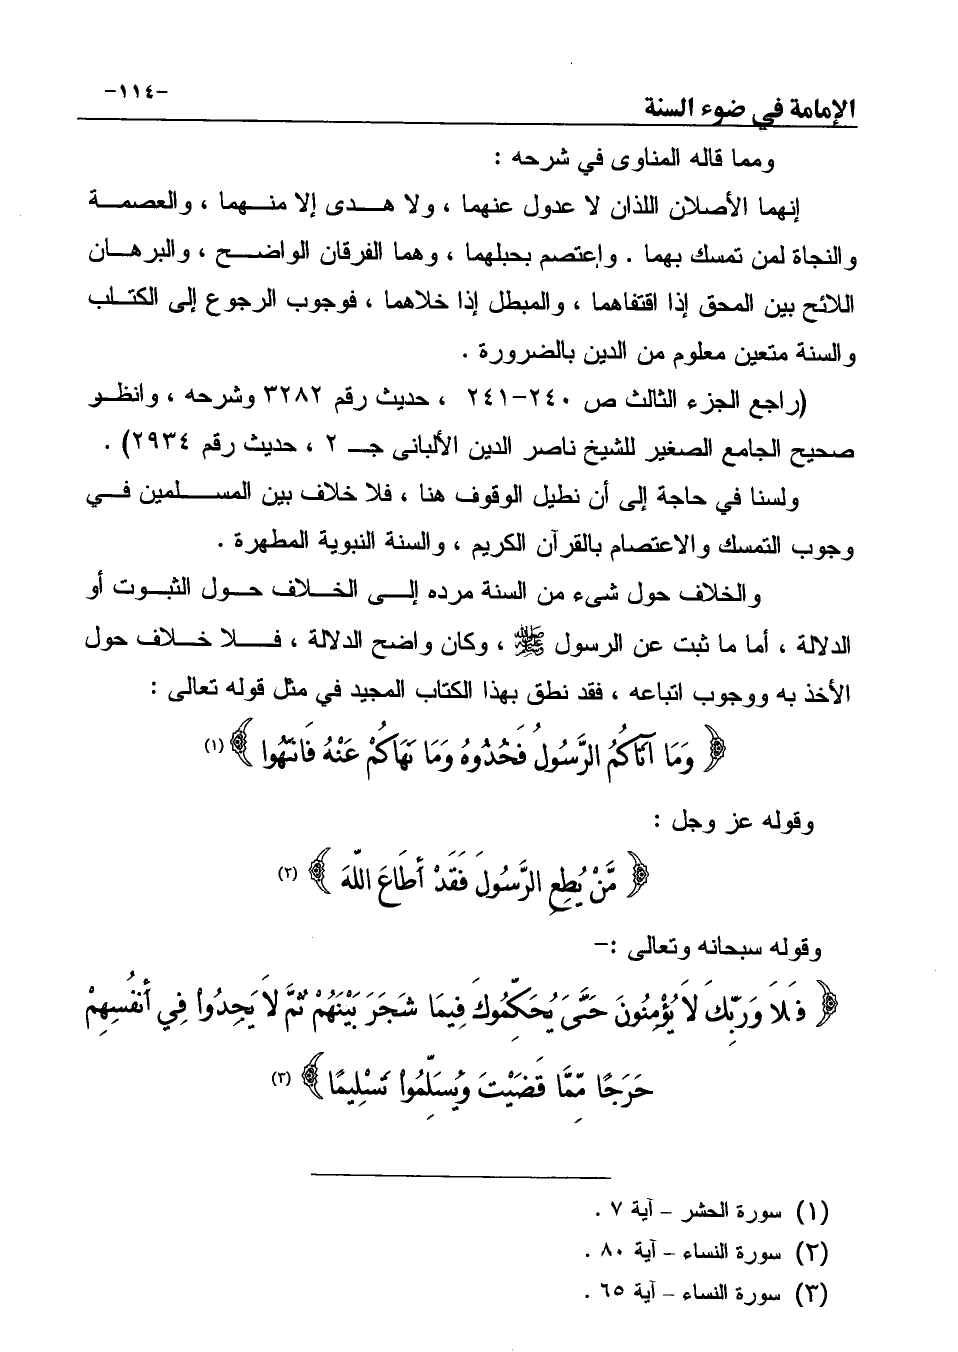 الإمامة في ضوء السنة -١١٤-
ومما قاله المناوى في شرحه :
إنهما الأصلان اللذان لا عدول عنهما ، ولا هــدى إلا منــهما ، والعصمــة
والنجاة لمن تمسك بهما . وإعتصم بحبلهما ، وهما الفرقان الواضــح ، والبرهــان
اللائح بين المحق إذا اقتفاهما ، والمبطل إذا خلاهما ، فوجوب الرجوع إلى الكتــلب
والسنة متعين معلوم من الدين بالضرورة .
(راجع الجزء الثالث ص ٢٤٠-٢٤١ ، حديث رقم ٣٢٨٢ وشرحه ، وانظــو
صحيح الجامع الصغير للشيخ ناصر الدين الألبانى جــ ٢ ، حديث رقم ٢٩٣٤) .
ولسنا في حاجة إلى أن نطيل الوقوف هنا ، فلا خلاف بين المســلمين فــي
وجوب التمسك والاعتصام بالقرآن الكريم ، والسنة النبوية المطهرة .
والخلاف حول شىء من السنة مرده إلــى الخــلاف حــول الثبــوت أو
الدلالة ، أما ما ثبت عن الرسول ﷺ ، وكان واضح الدلالة ، فــلا خــلاف حول
الأخذ به ووجوب اتباعه ، فقد نطق بهذا الكتاب المجيد في مثل قوله تعالى :
﴿ وَمَا آتَاكُمُ الرَّسُولُ فَخُذُوهُ وَمَا نَهَاكُمْ عَنْهُ فَانتَهُوا ﴾ (١)
وقوله عز وجل :
﴿ مَّنْ يُطِعِ الرَّسُولَ فَقَدْ أَطَاعَ اللَّهَ ﴾ (٢)
وقوله سبحانه وتعالى :-
﴿ فَلَا وَرَبِّكَ لَا يُؤْمِنُونَ حَتَّىَ يُحَكِّمُوكَ فِيمَا شَجَرَ بَيْنَهُمْ ثُمَّ لَا يَجِدُواْ فِي أَنفُسِهِمْ
حَرَجًا مِّمَّا قَضَيْتَ وَيُسَلِّمُواْ تَسْلِيمًا ﴾ (٣)
(١) سورة الحشر – آية ٧ .
(٢) سورة النساء – آية ٨٠ .
(٣) سورة النساء – آية ٦٥ .